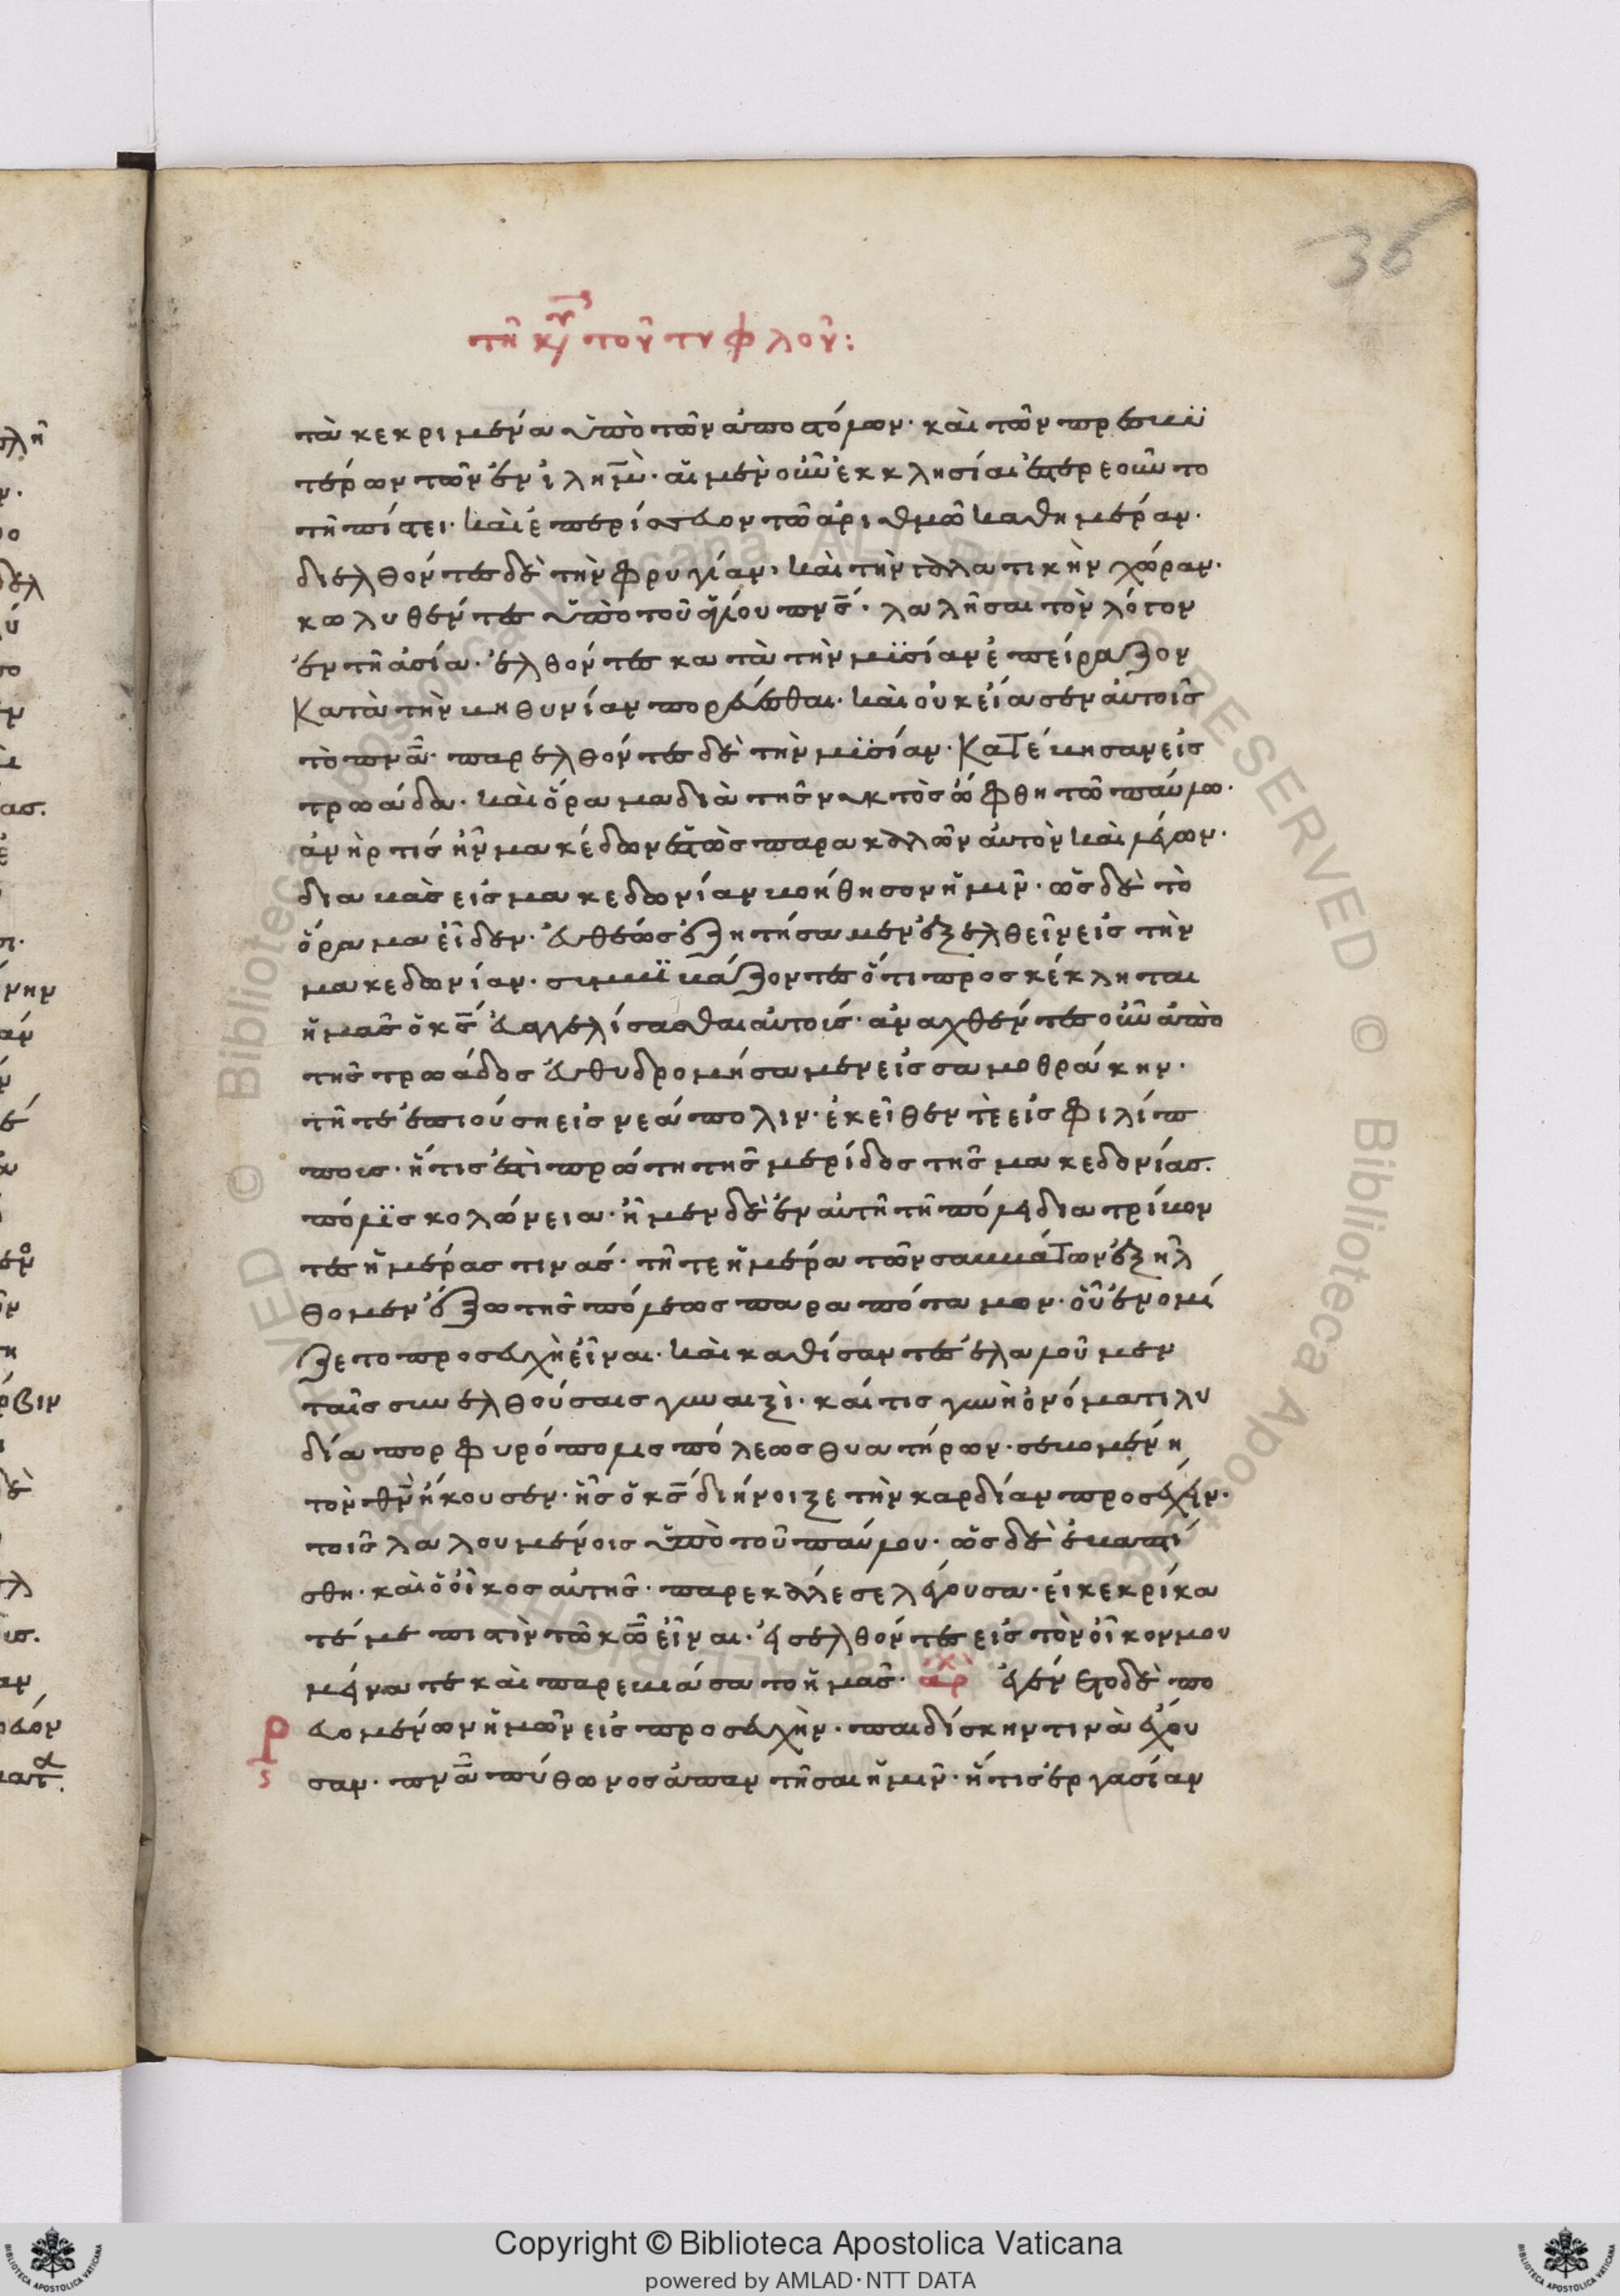 36
τῆ κυ τοῦ τυφλοῦ:
τὰ κεκριμένα ὑπὸ τῶν ἀποστόλων· καὶ τῶν πρεσβυ
τέρων τῶν ἐν ἱλημ· αἱ μὲν οὖν ἐκκλησίαι ἐστερεοῦντο
τῆ πίστει· καὶ ἐπερίσσευον τῶ ἀριθμῶ καθημέραν·
διελθόντες δὲ τὴν φρυγίαν· καὶ τὴν γαλατικὴν χώραν·
κωλυθέντες ὑπὸ τοῦ ἁγίου πνς· λαλῆσαι τὸν λόγον
ἐν τῆ ἀσία· ἐλθόντες κατὰ τὴν μυσίαν ἐπείραζον
κατὰ τὴν βηθυνίαν πορεύεσθαι· καὶ οὐκ εἴασεν αὐτοῖς
τὸ πνα· παρελθόντες δὲ τὴν μυσίαν· κατέβησαν εἰς
τρωάδα· καὶ ὅραμα διὰ τῆς νυκτὸς ὤφθη τῶ παύλω·
ἀνήρ τίς ἦν μακέδων ἑστὼς παρακαλῶν αὐτὸν καὶ λέγων·
διαβὰς εἰς μακεδωνίαν βοήθησον ἡμῖν· ὡς δὲ τὸ
ὅραμα εἶδεν· εὐθέως ἐζητήσαμεν ἐξελθεῖν εἰς τὴν
μακεδωνίαν· συμβιβάζοντες ὅτι προσκέκληται
ἡμᾶς ὁ κς εὐαγγελίσασθαι αὐτοῖς· ἀναχθέντες οὖν ἀπὸ
τῆς τρωάδος εὐθυδρομήσαμεν εἰς σαμοθράκην·
τῆ τε ἐπιούση εἰς νεάπολιν· ἐκεῖθέν τε εἰς φιλίπ
ποις· ἥτις ἐστὶ πρώτη τῆς μερίδος τῆς μακεδονίας·
πόλις κολώνεια· ἦμεν δὲ ἐν αὐτῆ τῆ πόλει διατρίβον
τες ἡμέρας τινάς· τῆ τε ἡμέρα τῶν σαββάτων ἐξήλ
θομεν ἔξω τῆς πόλεως παρα πόταμον· οὗ ἐνομί
ζετο προσευχὴ εἶναι· καὶ καθίσαντες ἐλαλοῦμεν
ταῖς συνελθούσαις γυναιξὶ· καί τις γυνὴ ὀνόματι λυ
δία πορφυρόπωλις πόλεως θυατήρων· σεβομένη
τὸν θν ἤκουσεν· ἧς ὁ κς διήνοιξε τὴν καρδίαν προσέχειν·
τοῖς λαλουμένοις ὑπὸ τοῦ παύλου· ὡς δὲ ἐβαπτί
σθη· καὶ ὁ οἶκος αὐτῆς· παρεκάλεσε λέγουσα· εἰ κεκρίκα
τέ με πιστὴν τῶ κω εἶναι· εἰσελθόντες εἰς τὸν οἶκον μου
μείνατε καὶ παρεβιάσατο ἡμᾶς· ἀρχ ἐγένετο δὲ πο
ρευομένων ἡμῶν εἰς προσευχὴν· παιδίσκην τινὰ ἔχου
σαν· πνα πύθωνος ἀπαντῆσαι ἡμῖν· ἥτις ἐργασίαν
Copyright © Biblioteca Apostolica Vaticana
powered by AMLAD·NTT DATA